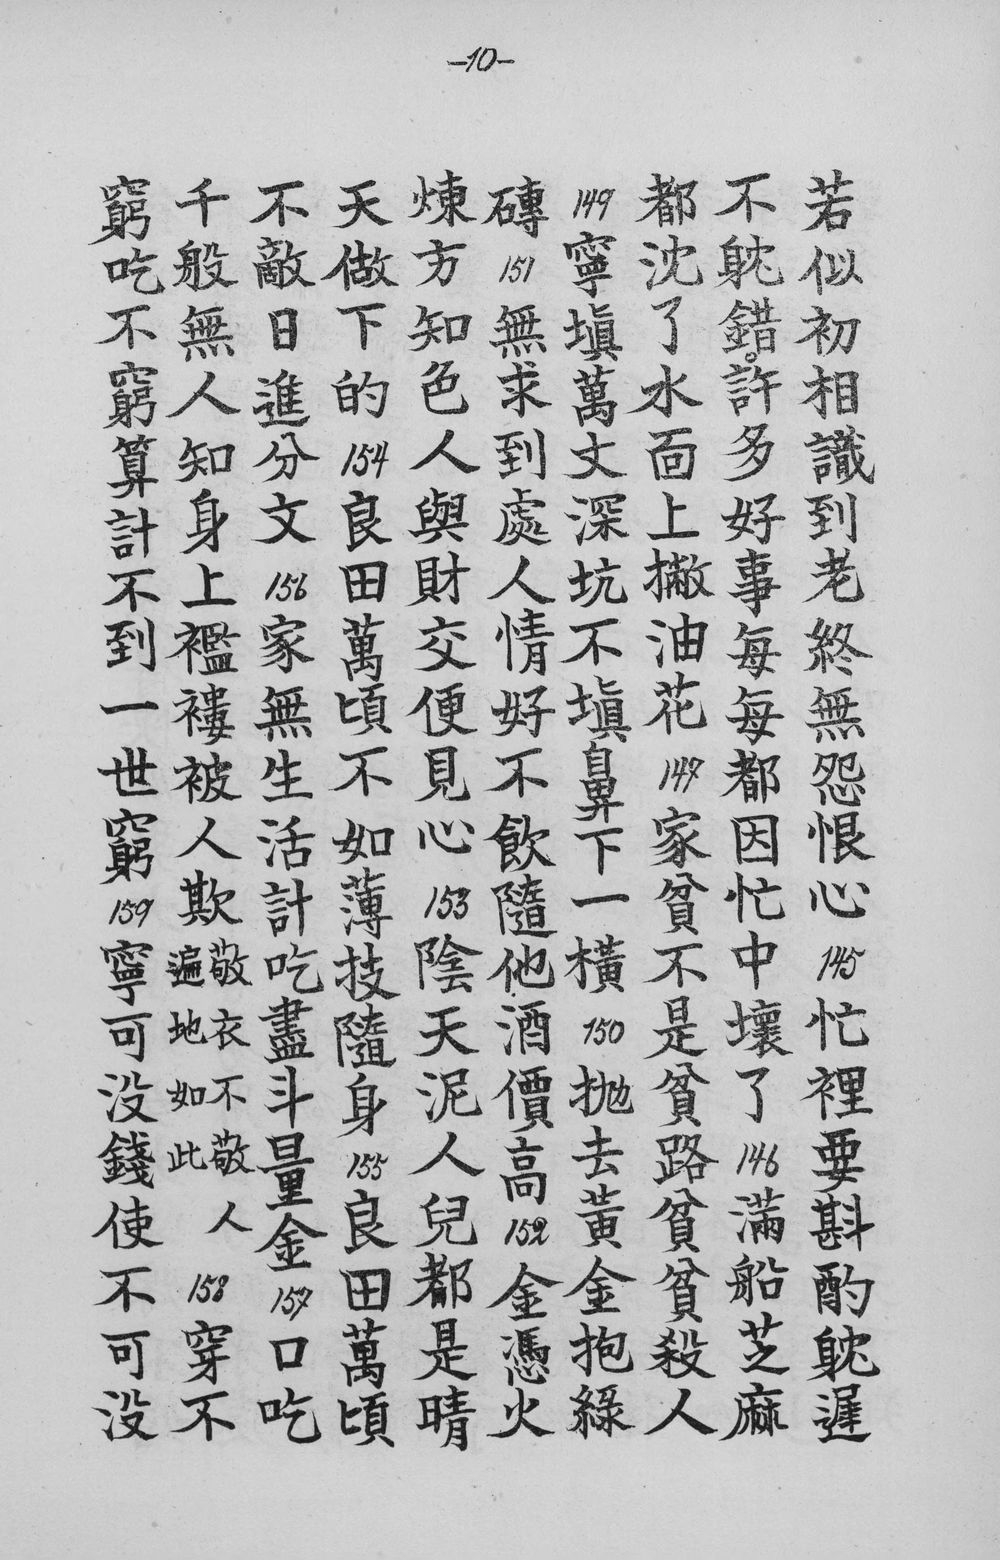 -10-
若似初相識到老終無怨恨心 145 忙裡要斟酌躭遲
不躭錯。許多好事每每都因忙中壞了 146 滿船芝麻
都沈了水面上撇油花 147 家貧不是貧路貧貧殺人
149 寧塡萬丈深坑不塡鼻下一橫 150 抛去黃金抱綠
磚 151 無求到處人情好不飲隨他酒價高 152 金憑火
煉方知色人與財交便見心 153 陰天泥人兒都是晴
天做下的 154 良田萬頃不如薄技隨身 155 良田萬頃
不敵日進分文 156 家無生活計吃盡斗量金 157 口吃
千般無人知身上襤褸被人欺 敬衣不敬人遍地如此 158 穿不
窮吃不窮算計不到一世窮 159 寧可没錢使不可没